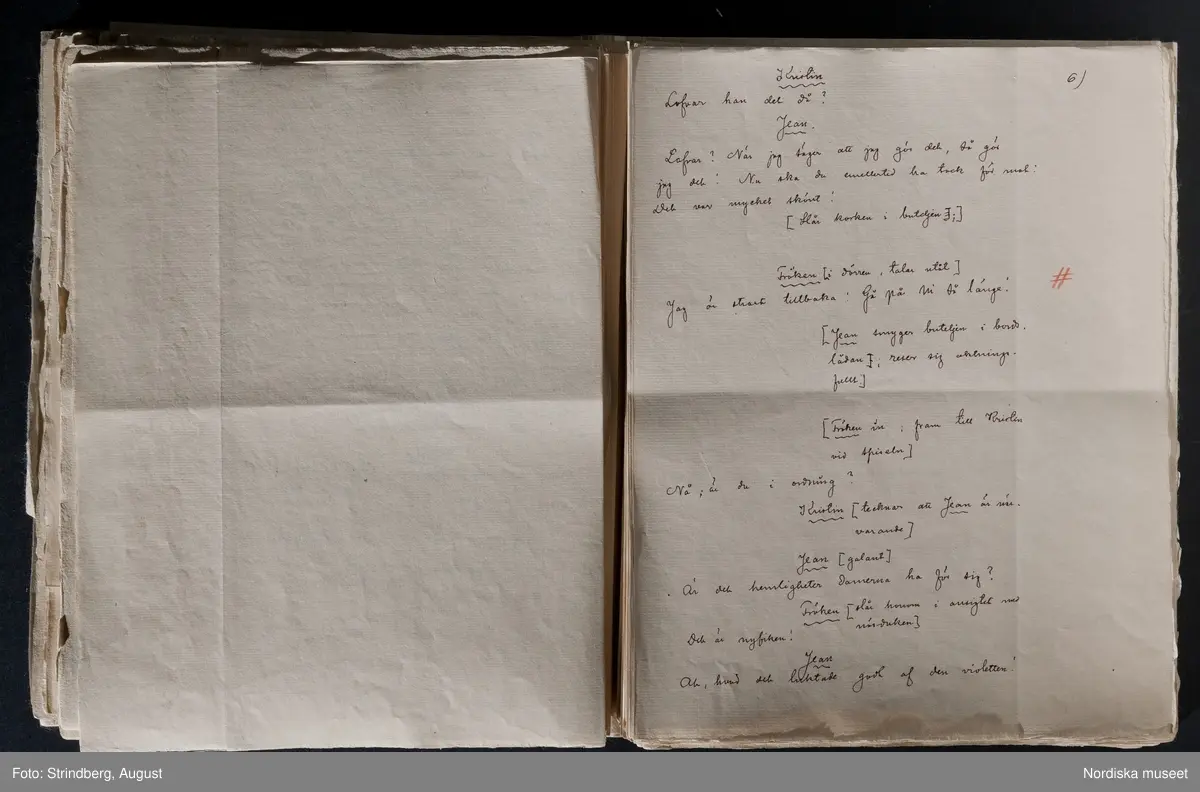 6)
Kristin
Lofvar han det då?
Jean.
Lofvar? När jag säger att jag gör det, så gör
jag det! Nu ska du emellertid ha tack för mat!
Det var mycket skönt!
[Slår korken i buteljen];]
Fröken [i dörren, talar utåt]
Jag är strax tillbaka! Gå på Ni så länge!
#
[Jean smyger buteljen i bords-
lådan]; reser sig aktnings-
fullt.]
[Fröken in; fram till Kristin
vid spiseln]
Nå; är du i ordning?
Kristin [tecknar att Jean är när-
varande]
Jean [galant]
Är det hemligheter Damerna ha för sig?
Fröken [slår honom i ansigtet med
näsduken]
Det är nyfiken!
Jean
Ah, hvad det luktade godt af den violetten!
Foto: Strindberg, August
Nordiska museet